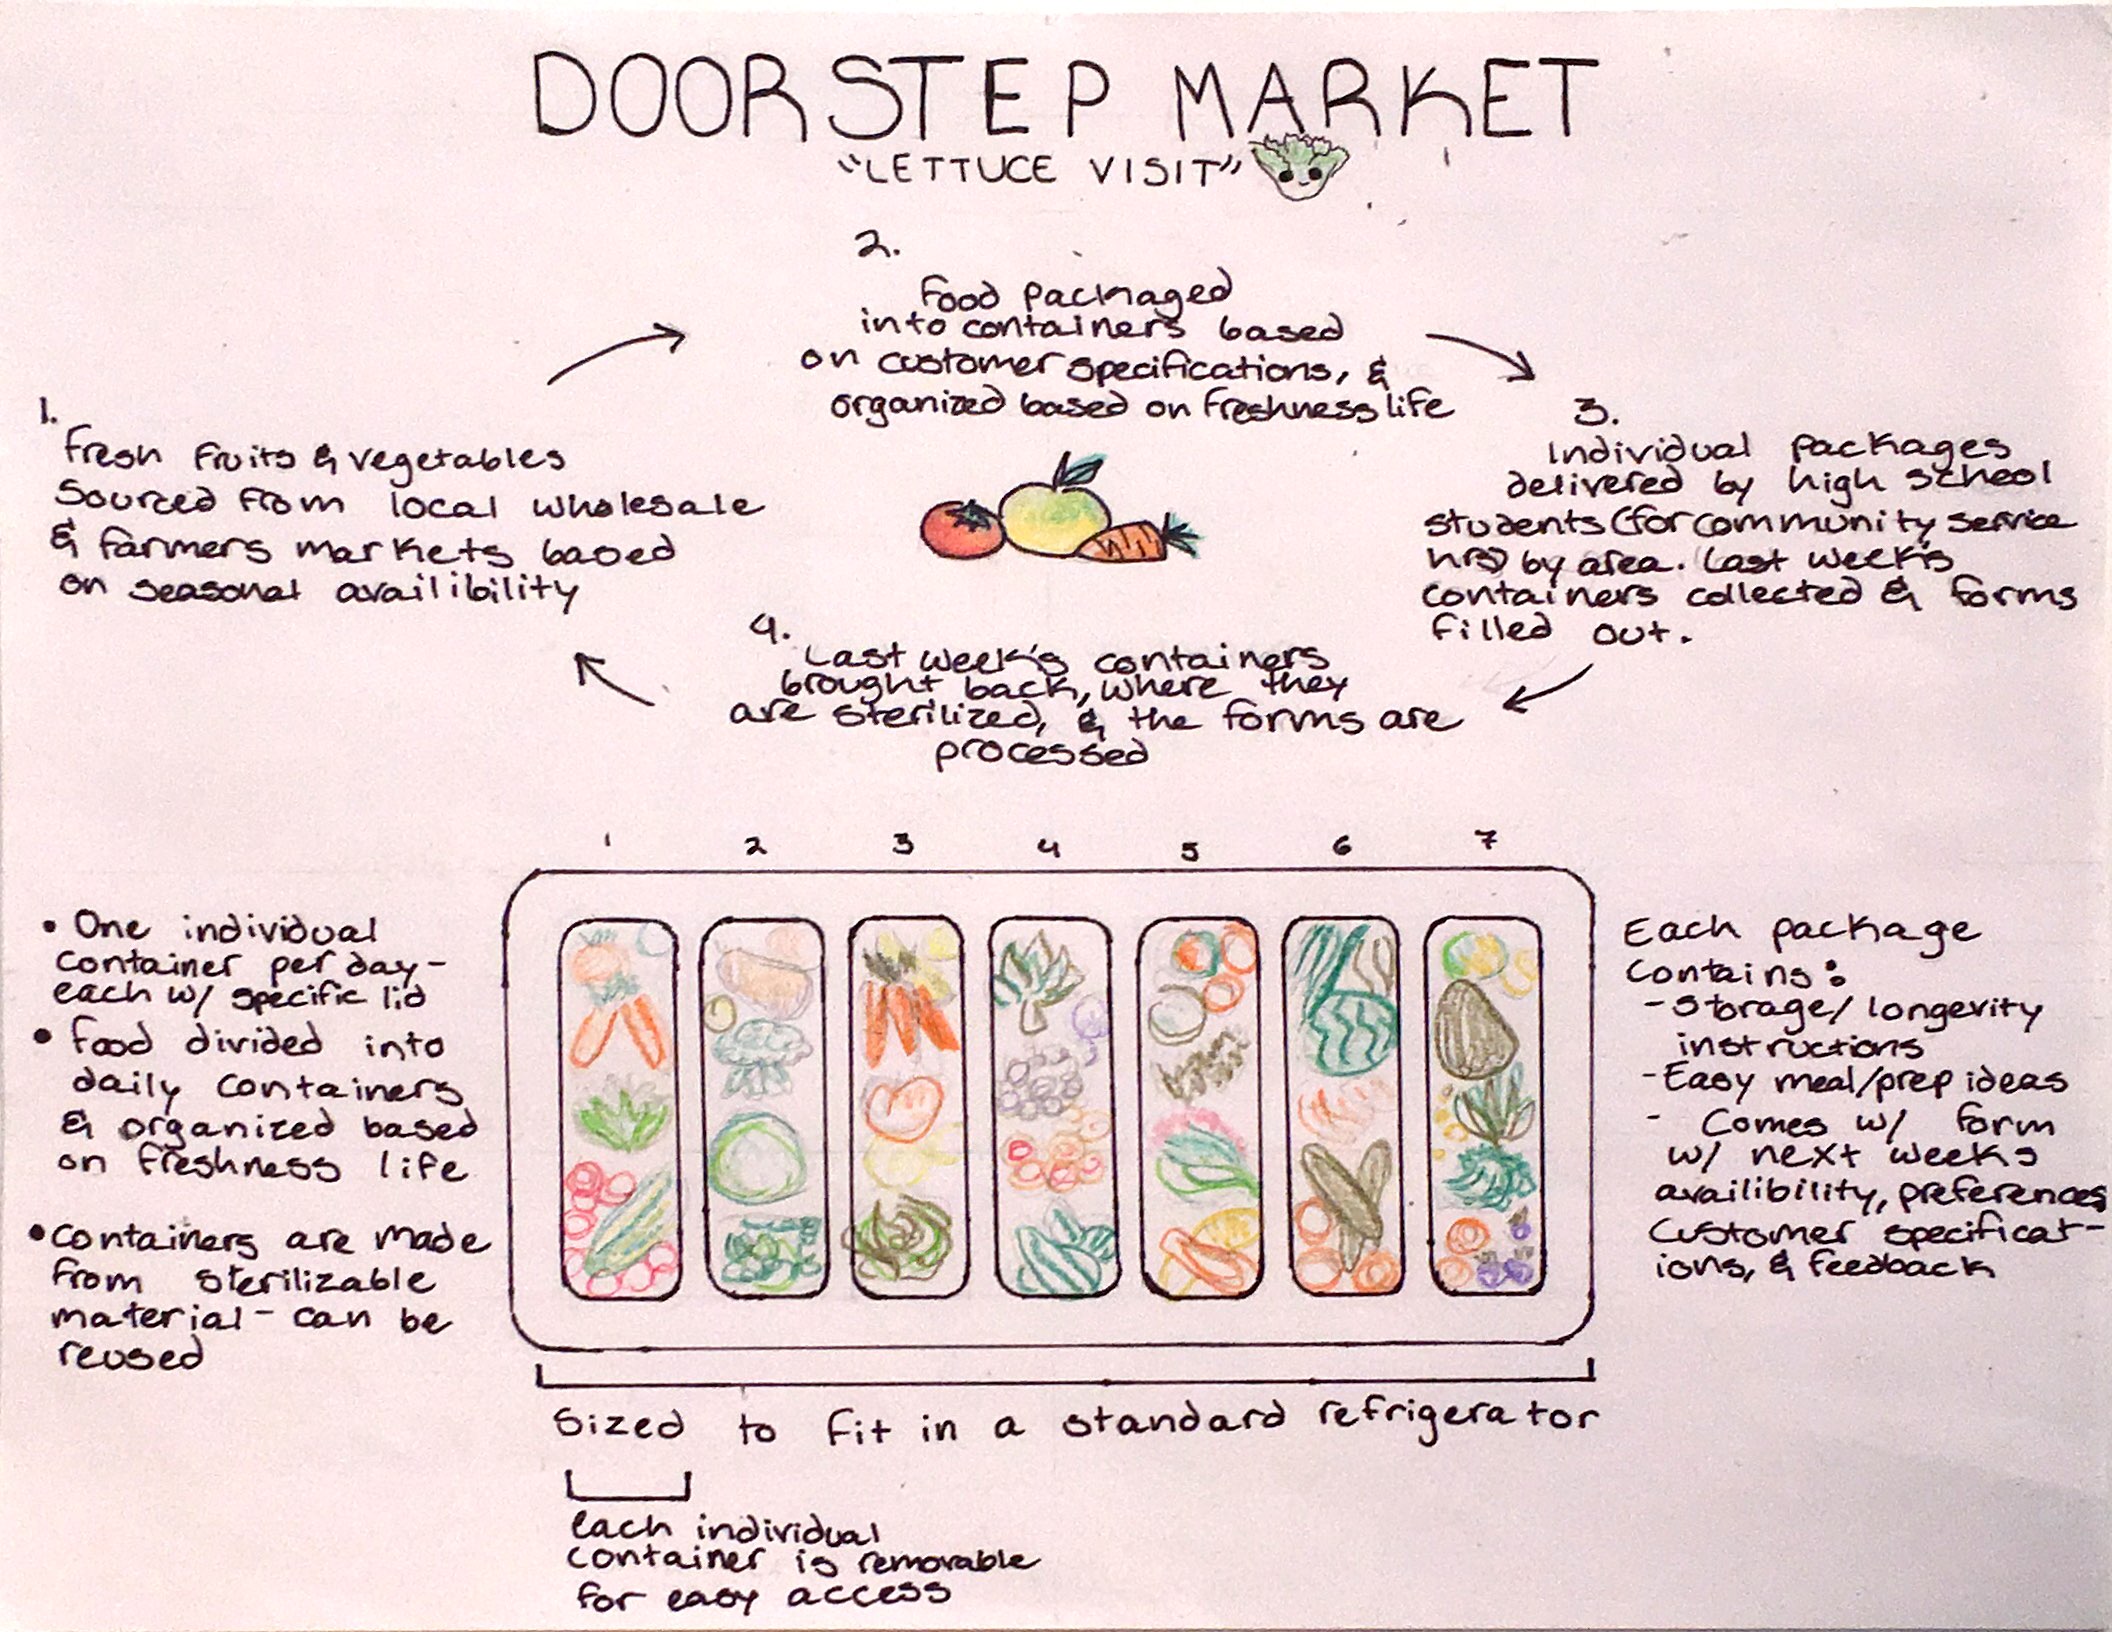 DOORSTEP MARKET
"LETTUCE VISIT"
2.
Food packaged
into containers based
on customer specifications, &
organized based on freshness life
1.
Fresh fruits & vegetables
Sourced from local wholesale
& farmers markets based
on seasonal availibility
3.
Individual packages
delivered by high school
students (for community service
hrs) by area. Last week's
containers collected & forms
filled out.
4.
Last week's containers
brought back, where they
are sterilized, & the forms are
processed
1 2 3 4 5 6 7
• One individual
container per day-
each w/ specific lid
• Food divided into
daily containers
& organized based
on freshness life
• Containers are made
from sterilizable
material - can be
reused
Each package
contains:
- Storage/longevity
instructions
- Easy meal/prep ideas
- Comes w/ form
w/ next weeks
availibility, preferences
customer specificat-
ions, & feedback
Sized to fit in a standard refrigerator
Each individual
container is removable
for easy access